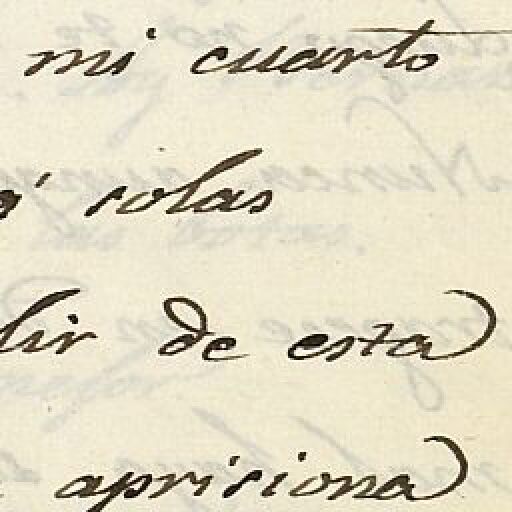 mi cuarto
ó solas
lir de esta
aprisiona